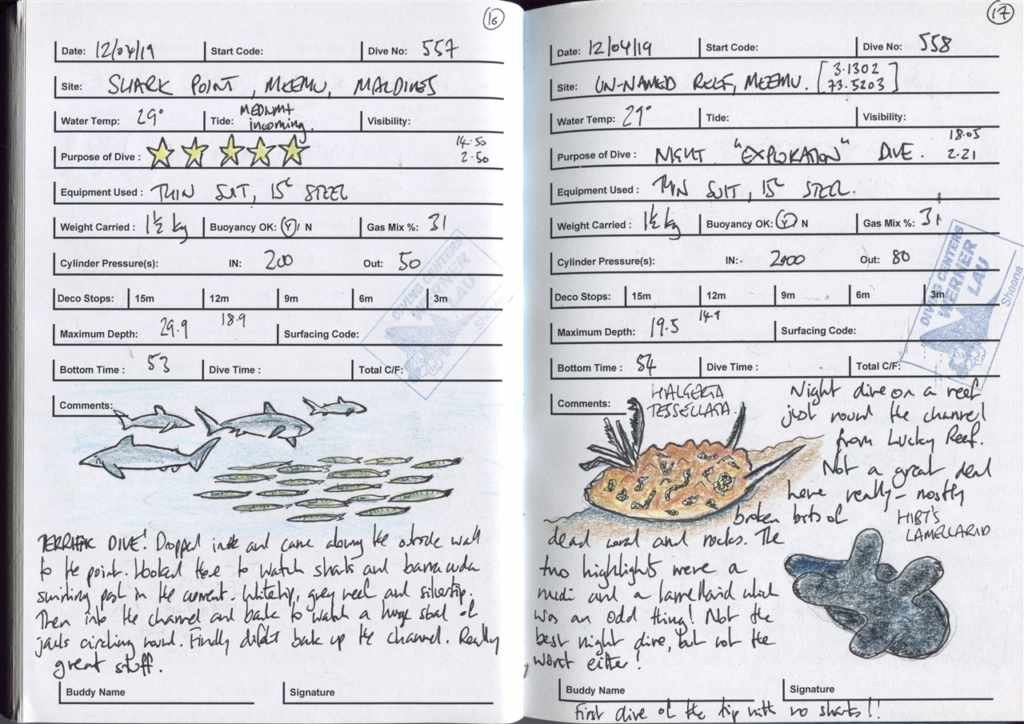 16
Date: 12/04/19 Start Code: Dive No: 557
Site: SHARK POINT, MEEMU, MALDIVES
Water Temp: 29° Tide: MEDIUM incoming. Visibility:
Purpose of Dive: 14.50 2.50
Equipment Used: THIN SUIT, 15L STEEL
Weight Carried: 1½ kg Buoyancy OK: Y/ N Gas Mix %: 31
Cylinder Pressure(s): IN: 200 Out: 50
Deco Stops: 15m 12m 9m 6m 3m
Maximum Depth: 29.9 18.9 Surfacing Code:
Bottom Time: 53 Dive Time: Total C/F:
DIVING CENTERS
WERNER
LAU
Comments:
TERRIFIC DIVE! Dropped inside and came along the outside wall
to the point. Hooked there to watch sharks and barracuda
swimming past in the current. Whitetip, grey reef and silvertip.
Then into the channel and back to watch a huge shoal of
jacks circling round. Finally drifted back up the channel. Really
great stuff.
Buddy Name Signature
17
Date: 12/04/19 Start Code: Dive No: 558
Site: UN-NAMED REEF, MEEMU. [3.1302 73.5203]
Water Temp: 29° Tide: Visibility:
Purpose of Dive: NIGHT "EXPLORATION" DIVE. 18.05 2.21
Equipment Used: THIN SUIT, 15L STEEL.
Weight Carried: 1½ kg Buoyancy OK: Y/ N Gas Mix %: 31
Cylinder Pressure(s): IN: 200 Out: 80
Deco Stops: 15m 12m 9m 6m 3m
Maximum Depth: 19.5 14.9 Surfacing Code:
Bottom Time: 54 Dive Time: Total C/F:
DIVING CENTERS
WERNER
LAU
Comments:
HALGERDA
TESSELLATA.
Night dive on a reef
just round the channel
from Lucky Reef.
Not a great deal
here really - mostly
broken bits of
dead coral and rocks. The
two highlights were a
nudi and a lamellarid which
was an odd thing! Not the
best night dive, but not the
worst either!
LAMELLARID
Buddy Name Signature
First dive of the trip with no sharks!!